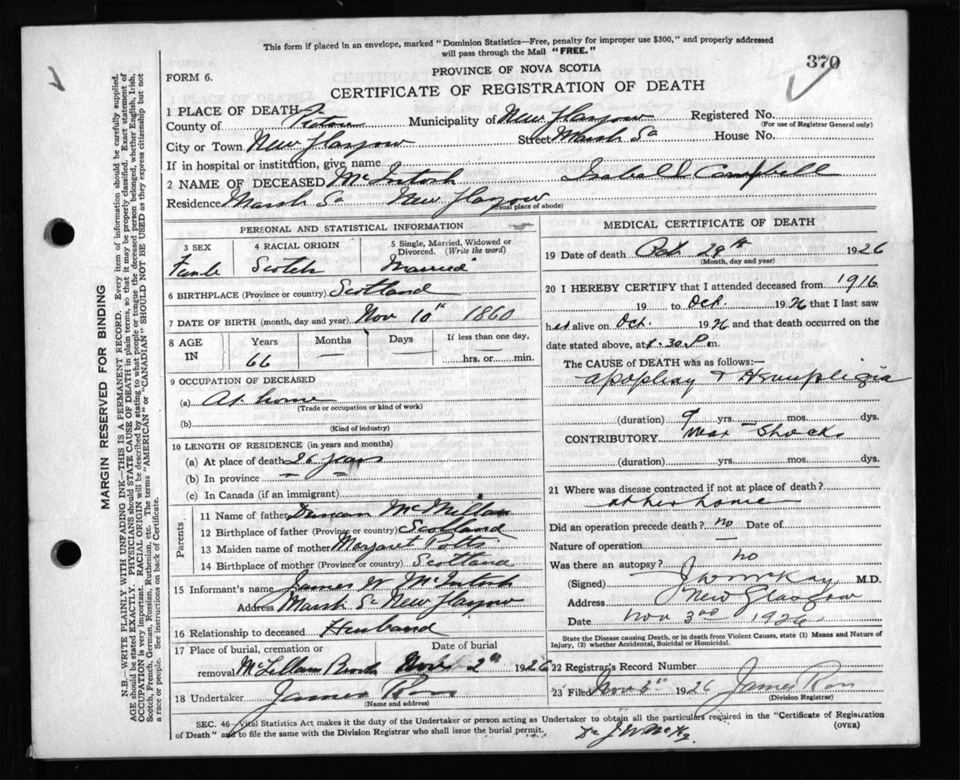 This form if placed in an envelope, marked "Dominion Statistics—Free, penalty for improper use $300," and properly addressed
will pass through the Mail "FREE."
370
FORM 6.
PROVINCE OF NOVA SCOTIA
CERTIFICATE OF REGISTRATION OF DEATH
1 PLACE OF DEATH
County of Pictou Municipality of New Glasgow Registered No.
(For use of Registrar General only)
City or Town New Glasgow Street Marsh St House No.
If in hospital or institution, give name
2 NAME OF DECEASED McIntosh Isabell Campbell
Residence Marsh St New Glasgow
(Usual place of abode)
PERSONAL AND STATISTICAL INFORMATION
3 SEX 4 RACIAL ORIGIN 5 Single, Married, Widowed or
Divorced. (Write the word)
Female Scotch Married
6 BIRTHPLACE (Province or country) Scotland
7 DATE OF BIRTH (month, day and year) Nov 10th 1860
8 AGE IN Years Months Days If less than one day,
66 — — hrs. or min.
9 OCCUPATION OF DECEASED
(a) At home
(Trade or occupation or kind of work)
(b)
(Kind of industry)
10 LENGTH OF RESIDENCE (in years and months)
(a) At place of death 26 years
(b) In province
(c) In Canada (if an immigrant)
Parents
11 Name of father Duncan McMillan
12 Birthplace of father (Province or country) Scotland
13 Maiden name of mother Margaret Potts
14 Birthplace of mother (Province or country) Scotland
15 Informant's name James W McIntosh
Address Marsh St New Glasgow
16 Relationship to deceased Husband
17 Place of burial, cremation or Date of burial
removal 2nd 1926
18 Undertaker James
(Name and address)
MEDICAL CERTIFICATE OF DEATH
19 Date of death Oct 29th 1926
(Month, day and year)
20 I HEREBY CERTIFY that I attended deceased from 1916
19 to Oct. 1926 that I last saw
her alive on Oct. 1926 and that death occurred on the
date stated above, at 8.30 P m.
The CAUSE OF DEATH was as follows:—
Apoplexy & Hemiplegia
(duration) 9 yrs. — mos. dys.
CONTRIBUTORY War – Shock
(duration) yrs. mos. dys.
21 Where was disease contracted if not at place of death?
at her home
Did an operation precede death? no Date of
Nature of operation —
Was there an autopsy? no
(Signed) J W McKay, M.D.
Address New Glasgow
Date Nov 3rd 1926
State the Disease causing Death, or in death from Violent Causes, state (1) Means and Nature of
Injury, (2) whether Accidental, Suicidal or Homicidal.
22 Registrar's Record Number
23 Filed Nov 1926 James
(Division Registrar)
SEC. 46—Vital Statistics Act makes it the duty of the Undertaker or person acting as Undertaker to obtain all the particulars required in the "Certificate of Registration
of Death" and to file the same with the Division Registrar who shall issue the burial permit.
(OVER)
Dr J W McKay
MARGIN RESERVED FOR BINDING
N.B.—WRITE PLAINLY WITH UNFADING INK—THIS IS A PERMANENT RECORD. Every item of information should be carefully supplied.
AGE should be stated EXACTLY. PHYSICIANS should STATE CAUSE OF DEATH in plain terms, so that it may be properly classified. Exact statement of
OCCUPATION is very important. RACIAL ORIGIN will be described by stating to what people or tongue the deceased person belonged, whether English, Irish,
Scotch, French, German, Russian, Ruthenian, etc. The terms "AMERICAN" or "CANADIAN" SHOULD NOT BE USED as they express citizenship but not
a race or people. See instructions on back of Certificate.